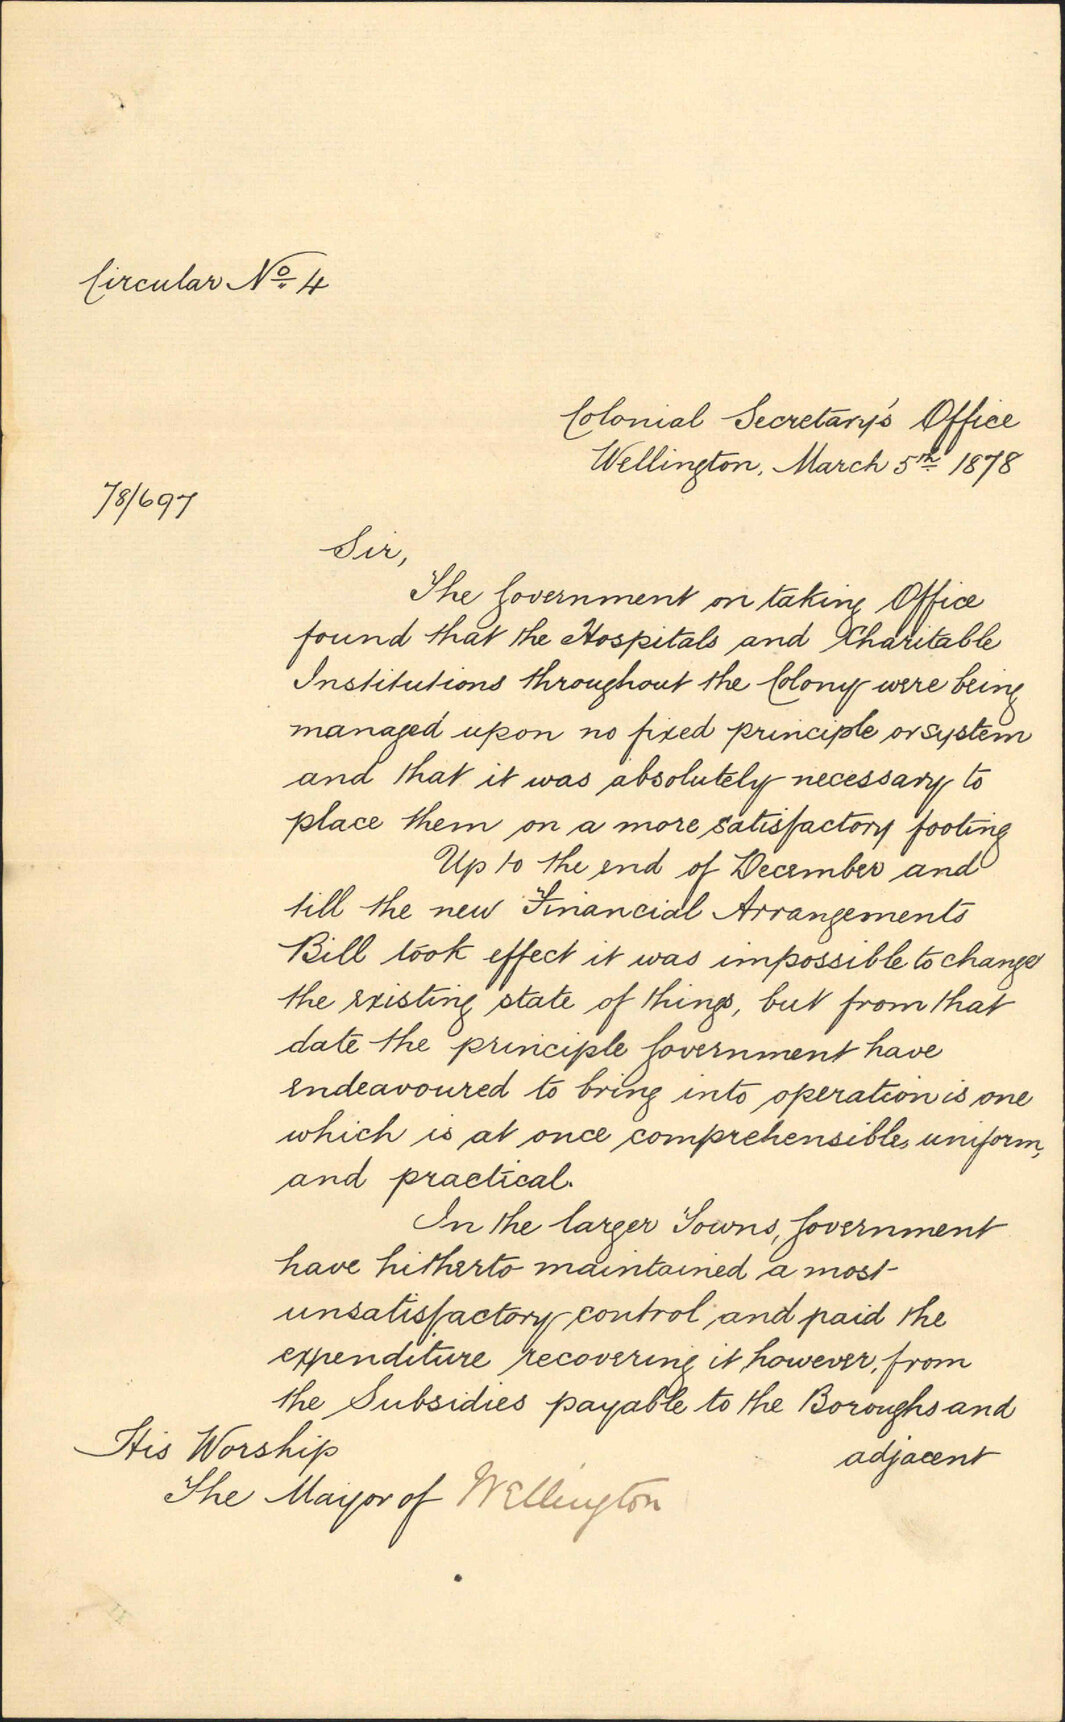 Circular No 4
Colonial Secretary's Office
Wellington, March 5th 1878
78/697
Sir,
The Government on taking Office
found that the Hospitals and Charitable
Institutions throughout the Colony were being
managed upon no fixed principle or system
and that it was absolutely necessary to
place them on a more satisfactory footing
Up to the end of December and
till the new Financial Arrangements
Bill took effect it was impossible to change
the existing state of things, but from that
date the principle Government have
endeavoured to bring into operation is one
which is at once comprehensible, uniform,
and practical.
In the larger Towns, Government
have hitherto maintained a most
unsatisfactory control, and paid the
expenditure recovering it however, from
the Subsidies payable to the Boroughs and
adjacent
His Worship
The Mayor of Wellington